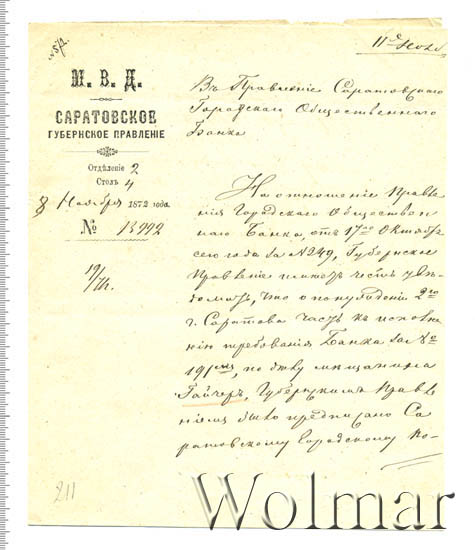 11го Нояб.
М. В. Д.
САРАТОВСКОЕ
ГУБЕРНСКОЕ ПРАВЛЕНІЕ
Отдѣленіе 2
Столъ 4
8 Ноября 1872 года.
№ 13992
Въ Правленіе Саратовскаго
Городскаго Общественнаго
Банка
На отношеніе Правле
нія Городскаго Обществен
наго Банка, отъ 17го Октября
сего года за № 249, Губернское
Правленіе имѣетъ честь увѣ
домить, что о понужденіи 2ю
г. Саратова часть къ исполне
нію требованія Банка за №
191, по дѣлу мѣщанина
Гайчеръ, Губернскимъ Правле
ніемъ было предписано Са
ратовскому Городскому По-
211
Wolmar